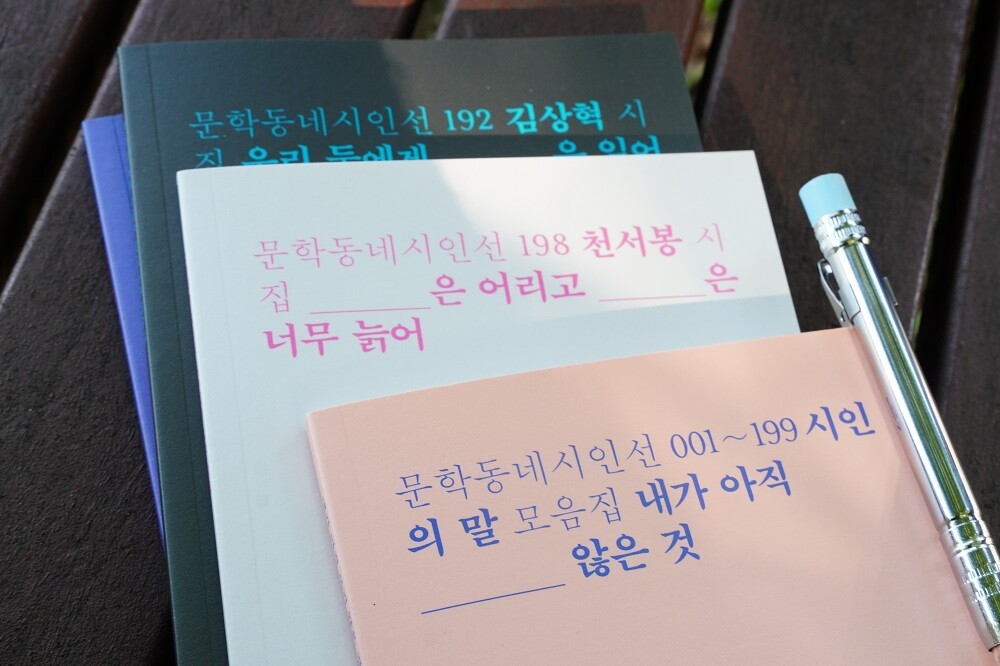 문학동네시인선 192 김상혁 시
집 우리 둘에게 ______은 잃어
문학동네시인선 198 천서봉 시
집 ______은 어리고 ______은
너무 늙어
문학동네시인선 001~199 시인
의 말 모음집 내가 아직
______ 않은 것